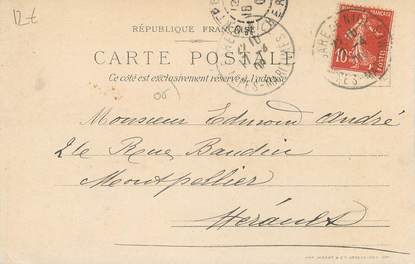 12-€
RÉPUBLIQUE FRANÇAISE
CARTE POSTALE
Ce côté est exclusivement réservé à l'adresse
10
POSTES
06
Monsieur Edmond André
24e Rue Baudin
Montpellier
Hérault